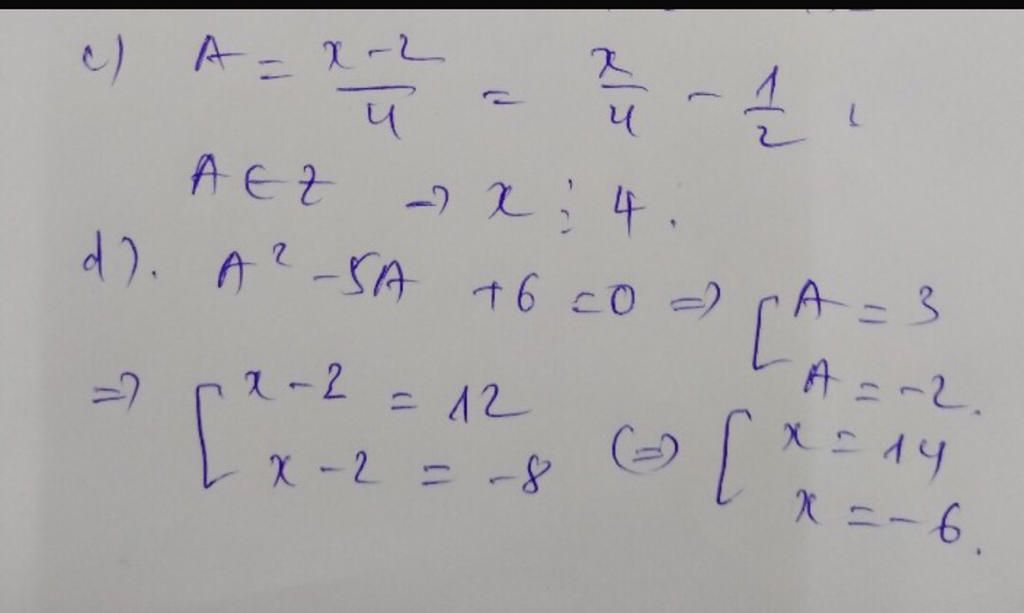 c) A = x-2/4 = x/4 - 1/2 ,
A ∈ Z → x ⋮ 4 .
d). A² -5A +6 =0 => [ A = 3
A = -2.
=> [ x-2 = 12
x-2 = -8 (=>) [ x = 14
x = -6.